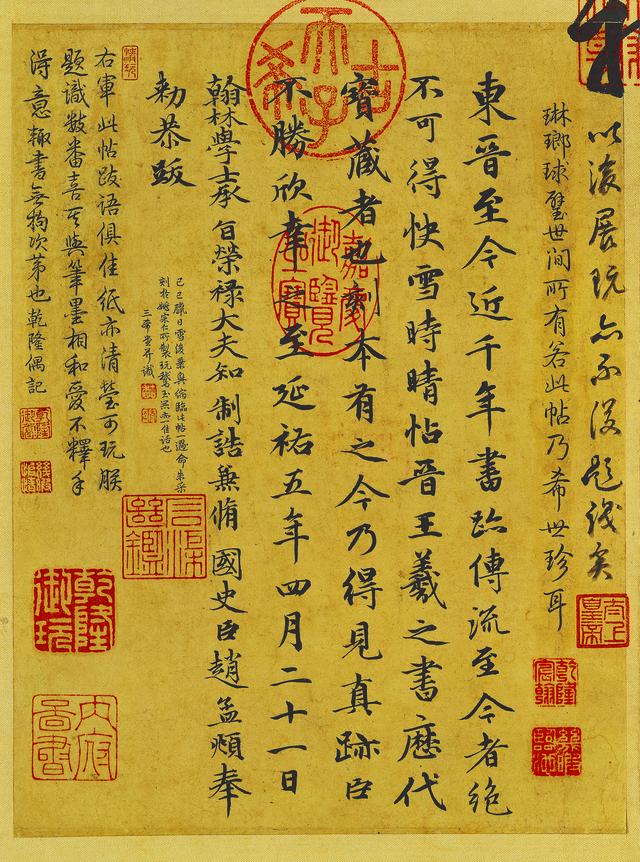 以後展玩亦不復題識矣
太上皇帝
琳瑯球璧世間所有若此帖乃希世珍耳
乾隆宸翰
古希天子
嘉慶御覽之寶
東晉至今近千年書跡傳流至今者絕
不可得快雪時晴帖晉王羲之書歷代
寶藏者也刻本有之今乃得見真跡臣
不勝欣幸之至延祐五年四月二十一日
翰林學士承旨榮祿大夫知制誥兼脩國史臣趙孟頫奉
勑恭跋
己巳臘日雪後乘興偶臨此帖適命朱采
刻於宋人所製玩鵝玉一佳話也
三希堂并識
右軍此帖跋語俱佳紙亦清瑩可玩朕
題識數番喜其與筆墨相和愛不釋手
得意輒書無拘次第也乾隆偶記
乾隆御玩
內府圖書